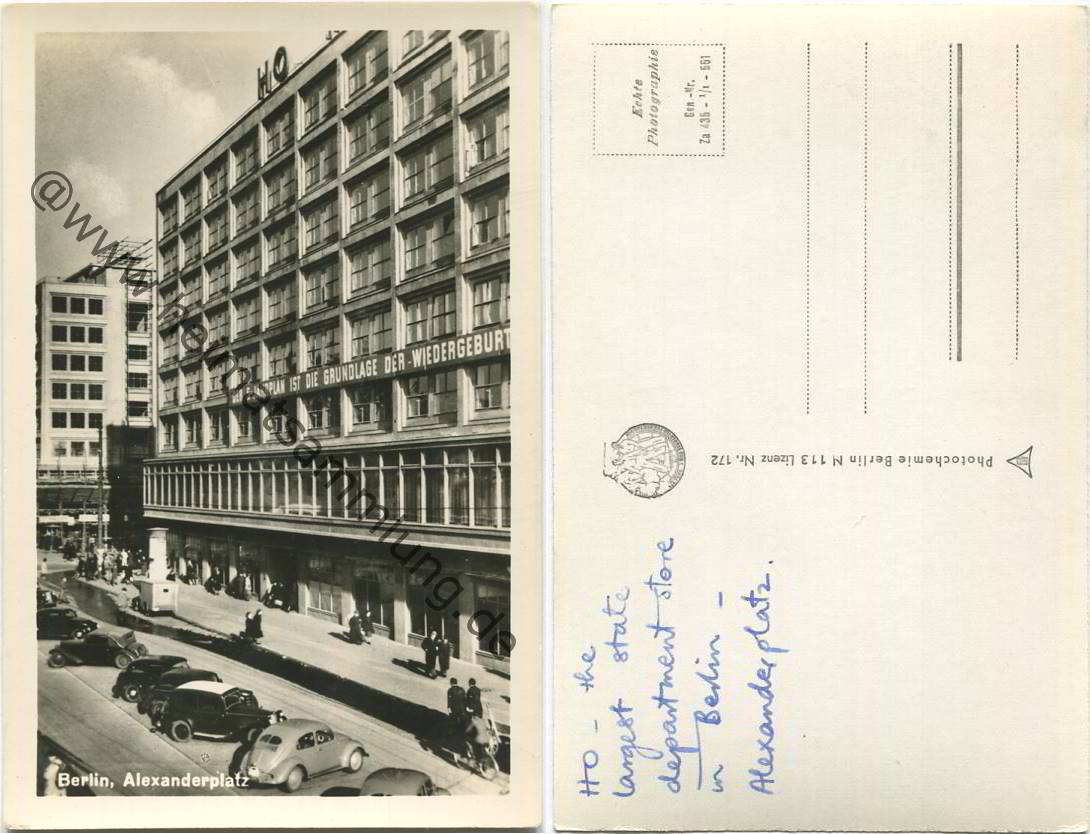 HO
PLAN IST DIE GRUNDLAGE DER WIEDERGEBURT
Berlin, Alexanderplatz
@www.heimatsammlung.de
Echte
Photographie
Gen.-Nr.
Za 435 - 1/1 - 661
Photochemie Berlin N 113 Lizenz Nr. 172
HO - the
largest state
department store
in Berlin -
Alexanderplatz.